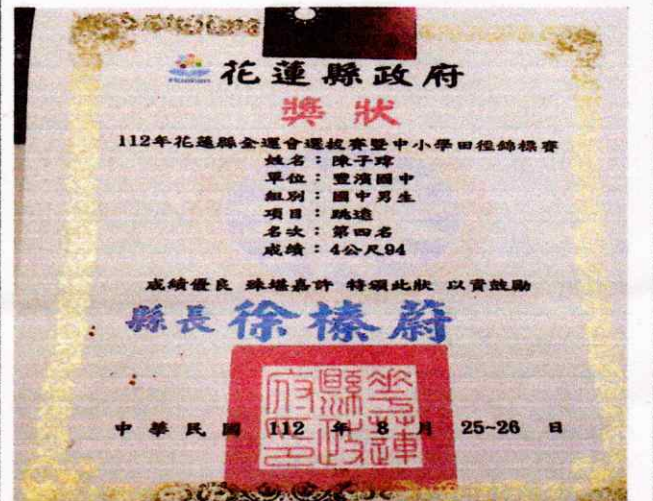 花蓮縣政府
獎狀
112年花蓮縣全運會選拔賽暨中小學田徑錦標賽
姓名：陳子瑋
單位：豐濱國中
組別：國中男生
項目：跳遠
名次：第四名
成績：4公尺94
成績優良 殊堪嘉許 特頒此狀 以資鼓勵
縣長 徐榛蔚
花蓮縣政府印
中華民國 112 年 8 月 25~26 日